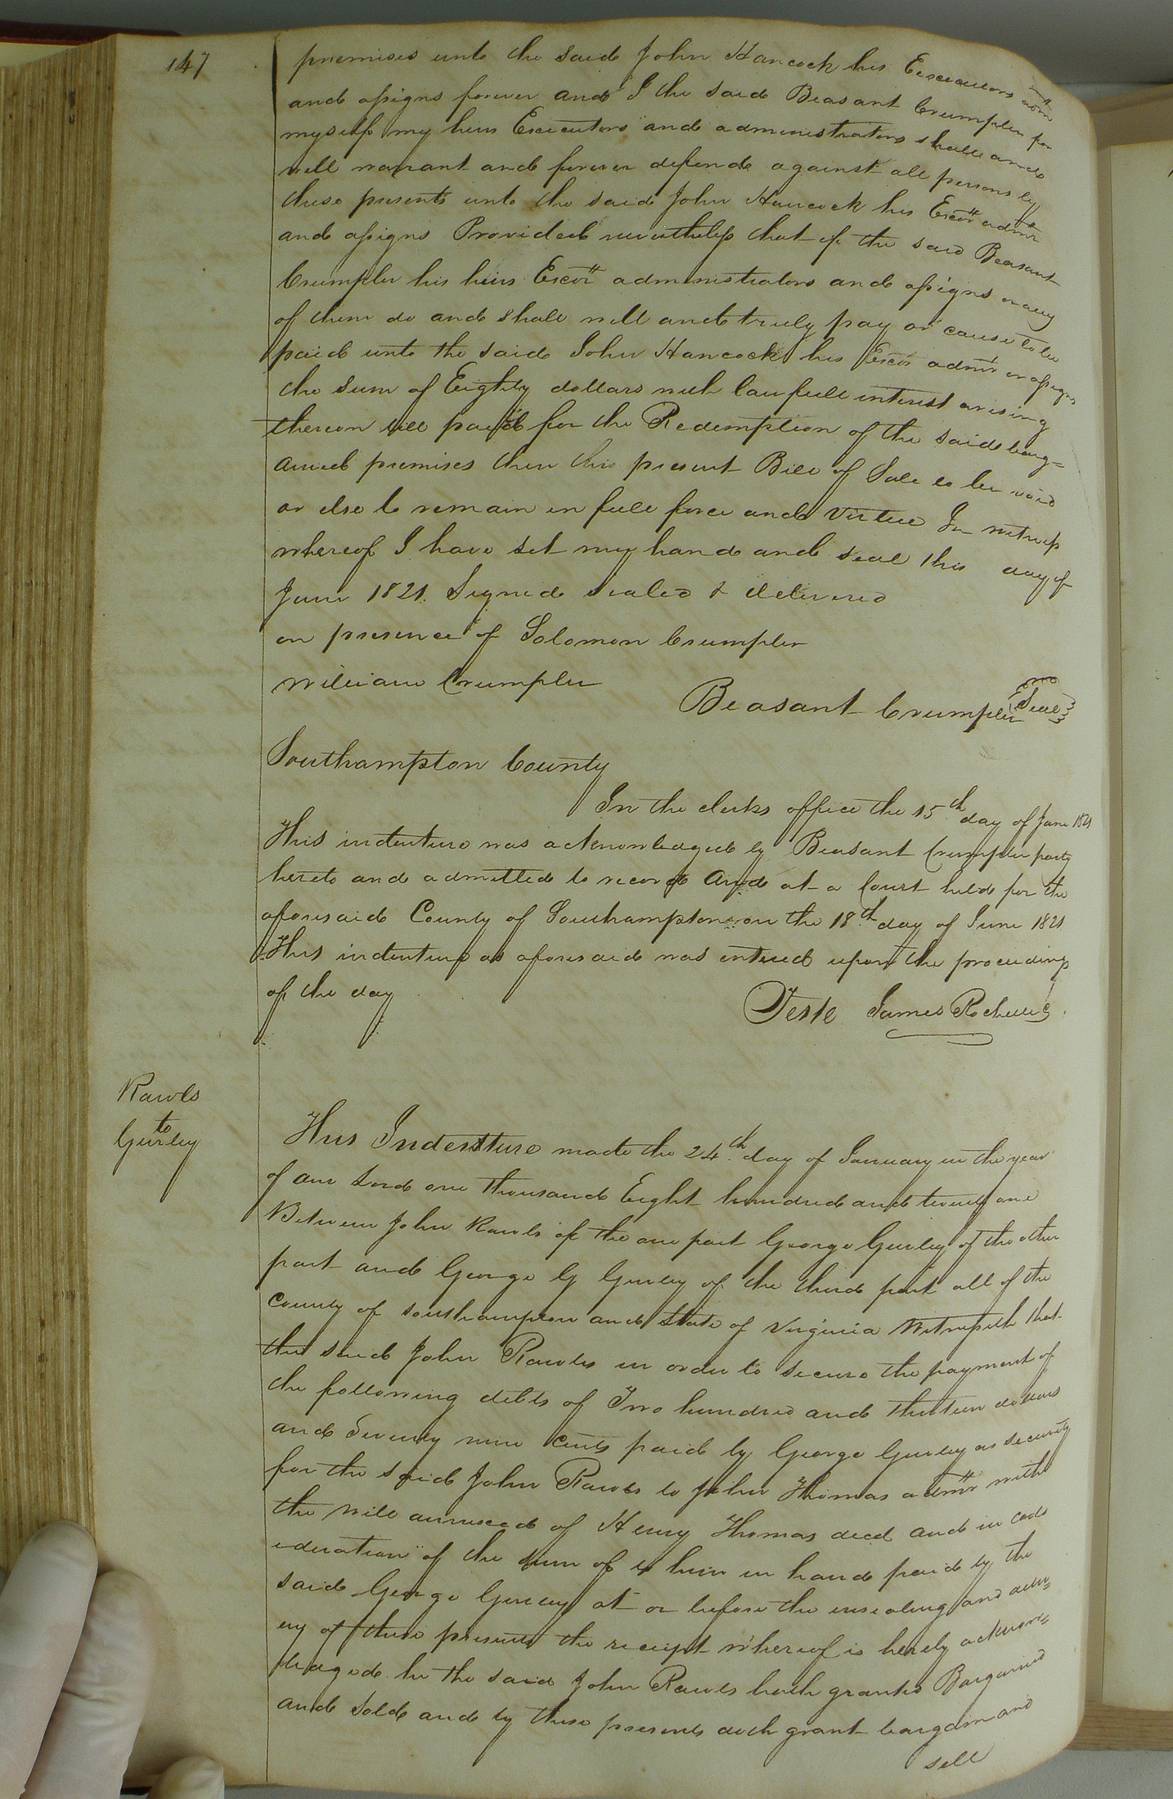 147
premises unto the said John Hancock his Executors adm
and assigns forever and I the said Beasant Crumpler for
myself my heirs Executors and administrators shall and
will warrant and forever defend against all persons by
these presents unto the said John Hancock his Exors admrs
and assigns Provided nevertheless that if the said Beasant
Crumpler his heirs Exors administrators and assigns or any
of them do and shall well and truly pay or cause to be
paid unto the said John Hancock his Exors admrs or assigns
the sum of Eighty dollars with lawfull interest arising
thereon till paid for the Redemption of the said barg=
ained premises then this present Bill of Sale to be void
or else to remain in full force and Virtue In witness
whereof I have set my hand and seal this day of
June 1821. Signed sealed & delivered
in presence of Solomon Crumpler
William Crumpler
Beasant Crumpler Seal
Southampton County
In the clerks office the 15th day of June 1821
This indenture was acknowledged by Beasant Crumpler party
hereto and admitted to record And at a Court held for the
aforesaid County of Southampton on the 18th day of June 1821
This indenture as aforesaid was entered upon the proceedings
of the day
Teste James Rochelle
Rawls
to
Gurley
This Indenture made the 24th day of January in the year
of our Lord one thousand Eight hundred and twenty one
Between John Rawls of the one part George Gurley of the other
part and George G Gurley of the third part all of the
county of Southampton and State of Virginia Witnesseth that
the said John Rawls in order to secure the payment of
the following debts of Two hundred and thirteen dollars
and Seventy nine Cents paid by George Gurley as security
for the said John Rawls to John Thomas admr with
the will annexed of Henry Thomas decd and in cons
ideration of the sum of to him in hand paid by the
said George Gurley at or before the ensealing and deliv=
ery of these presents the receipt whereof is hereby acknow=
ledged he the said John Rawls hath granted Bargained
and Sold and by these presents doth grant bargain and
sell